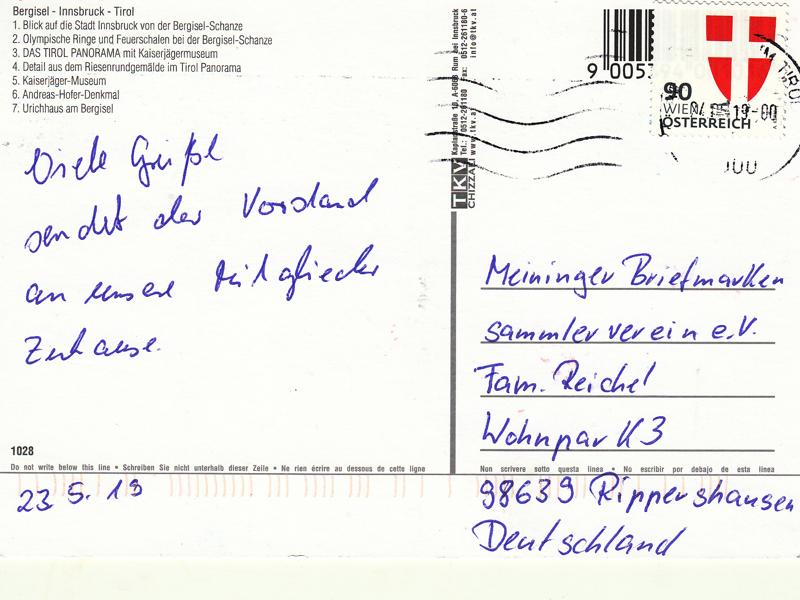 Bergisel - Innsbruck - Tirol
1. Blick auf die Stadt Innsbruck von der Bergisel-Schanze
2. Olympische Ringe und Feuerschalen bei der Bergisel-Schanze
3. DAS TIROL PANORAMA mit Kaiserjägermuseum
4. Detail aus dem Riesenrundgemälde im Tirol Panorama
5. Kaiserjäger-Museum
6. Andreas-Hofer-Denkmal
7. Urichhaus am Bergisel
Viele Grüße
sendet der Vorstand
an unsere Mitglieder
Zuhause.
1028
Do not write below this line • Schreiben Sie nicht unterhalb dieser Zeile • Ne rien écrire au dessous de cette ligne
23 5. 19
TKV
CHIZZALI
Kaplanstraße 10, A-6063 Rum bei Innsbruck
Tel.: 0512-261180 Fax: 0512-261180-6
www.tkv.at info@tkv.at
9 0053
90
WIEN
ÖSTERREICH
Meininger Briefmarken
sammler verein e.V.
Fam. Reichel
Wohnpark 3
Non scrivere sotto questa linea • No escribir por debajo de esta linea
98639 Rippershausen
Deutschland